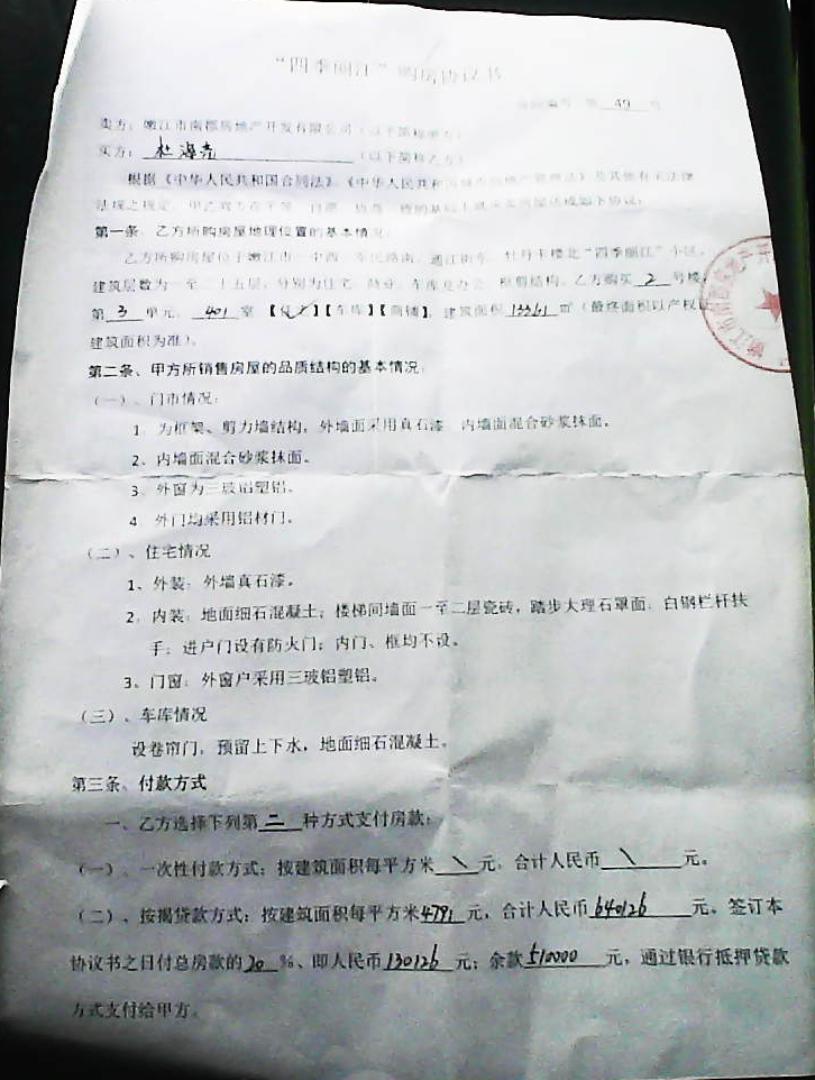 “四季丽江”购房协议书
合同编号 第 49 号
卖方：嫩江市南郡房地产开发有限公司（以下简称甲方）
买方：杜海亮（以下简称乙方）
根据《中华人民共和国合同法》、《中华人民共和国城市房地产管理法》及其他有关法律
法规之规定，甲乙双方在平等、自愿、协商一致的基础上就买卖房屋达成如下协议：
第一条、乙方所购房屋地理位置的基本情况
乙方所购房屋位于嫩江市一中西、军民路南、通江街东、牡丹卡楼北“四季丽江”小区，
建筑层数为一至二十五层，分别为住宅、商业、车库及办公，框剪结构。乙方购买 2 号楼
第 3 单元，401 室【住宅】【车库】【商铺】，建筑面积 133.61 ㎡（最终面积以产权
建筑面积为准）。
第二条、甲方所销售房屋的品质结构的基本情况：
（一）、门市情况：
1、为框架、剪力墙结构，外墙面采用真石漆，内墙面混合砂浆抹面。
2、内墙面混合砂浆抹面。
3、外窗为三玻铝塑铝。
4、外门均采用铝材门。
（二）、住宅情况
1、外装：外墙真石漆。
2、内装：地面细石混凝土；楼梯间墙面一至二层瓷砖，踏步大理石罩面，白钢栏杆扶
手；进户门设有防火门；内门、框均不设。
3、门窗：外窗户采用三玻铝塑铝。
（三）、车库情况
设卷帘门，预留上下水，地面细石混凝土。
第三条、付款方式
一、乙方选择下列第 二 种方式支付房款：
（一）、一次性付款方式：按建筑面积每平方米 \ 元，合计人民币 \ 元。
（二）、按揭贷款方式：按建筑面积每平方米 4791 元，合计人民币 640126 元。签订本
协议书之日付总房款的 20 %、即人民币 130126 元；余款 510000 元，通过银行抵押贷款
方式支付给甲方。